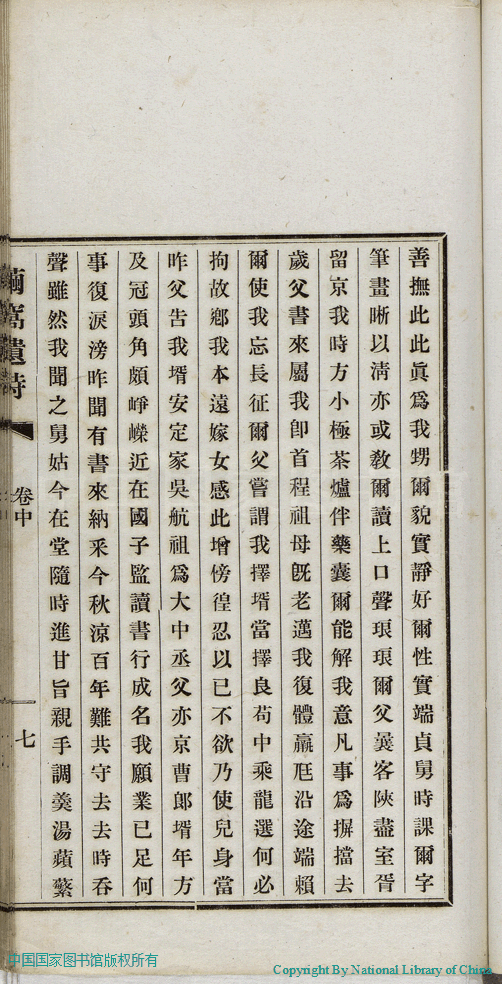 善撫此此眞爲我甥爾貌實靜好爾性實端貞舅時課爾字
筆畫晰以淸亦或敎爾讀上口聲琅琅爾父曩客陝盡室胥
留京我時方小極茶爐伴藥囊爾能解我意凡事爲摒擋去
歲父書來屬我卽首程祖母旣老邁我復體羸尫沿途端賴
爾使我忘長征爾父嘗謂我擇壻當擇良苟中乘龍選何必
拘故鄕我本遠嫁女感此增傍徨忍以已不欲乃使兒身當
昨父告我壻安定家吳航祖爲大中丞父亦京曹郞壻年方
及冠頭角頗崢嶸近在國子監讀書行成名我願業已足何
事復淚滂昨聞有書來納采今秋涼百年難共守去去時吞
聲雖然我聞之舅姑今在堂隨時進甘旨親手調羹湯蘋蘩
繭窩遺詩
卷中
七
中国国家图书馆版权所有
Copyright By National Library of China